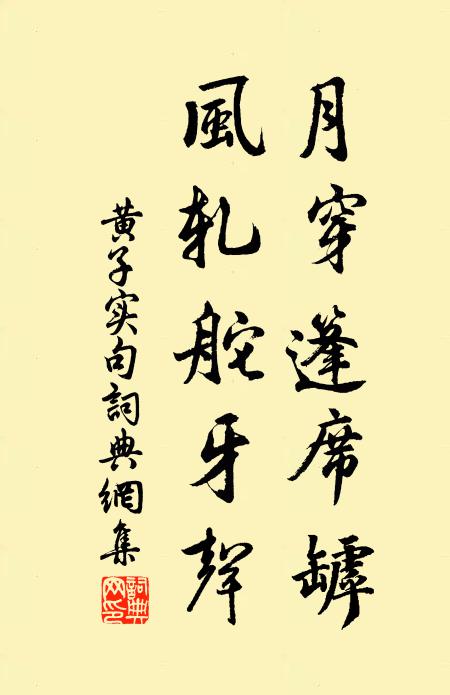 月穿蓬席罅
風軋舵牙聲
黄子实句詞典網集
詞典网印